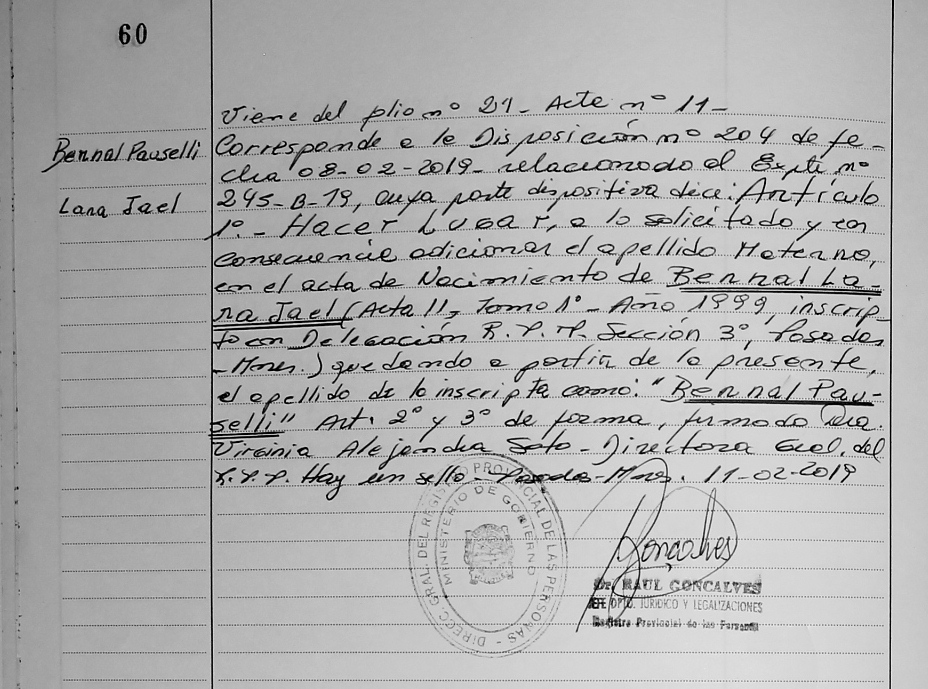 60
Viene del folio nº 21- Acta nº 11-
Bernal Pauselli
Lara Jael
Corresponde a la Disposición nº 204 de fe-
cha 08-02-2019- relacionado al Expte nº
245-B-19, cuya parte dispositiva dice: Artículo
1º- Hacer Lugar, a lo solicitado y en
consecuencia adicionar el apellido Materno,
en el acta de Nacimiento de Bernal La-
ra Jael (Acta 11, Tomo 1º- Año 1999, inscrip-
ta en Delegación R.P.P. Sección 3º, Posadas
-Mnes.) quedando a partir de la presente,
el apellido de la inscripta como: "Bernal Pau-
selli" Art. 2º y 3º de forma, firmado Dra.
Virginia Alejandra Soto- Directora Gral. del
R.P.P. Hay un sello- Posadas-Mnes. 11-02-2019
DIRECC. GRAL. DEL REGISTRO PROVINCIAL DE LAS PERSONAS -
MINISTERIO DE GOBIERNO
Goncalves
Dr. RAUL GONCALVES
JEFE DPTO. JURIDICO Y LEGALIZACIONES
Registro Provincial de las Personas